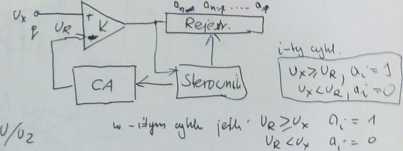 Ux
q
UR
+
K
an-1 an-2 .... a0
Rejestr.
CA
Sterownik
i-ty cykl.
Ux ≥ UR, ai = 1
Ux < UR, ai = 0
U/U2
w i-tym cyklu jeśli UR ≥ Ux ai = 1
UR < Ux ai = 0